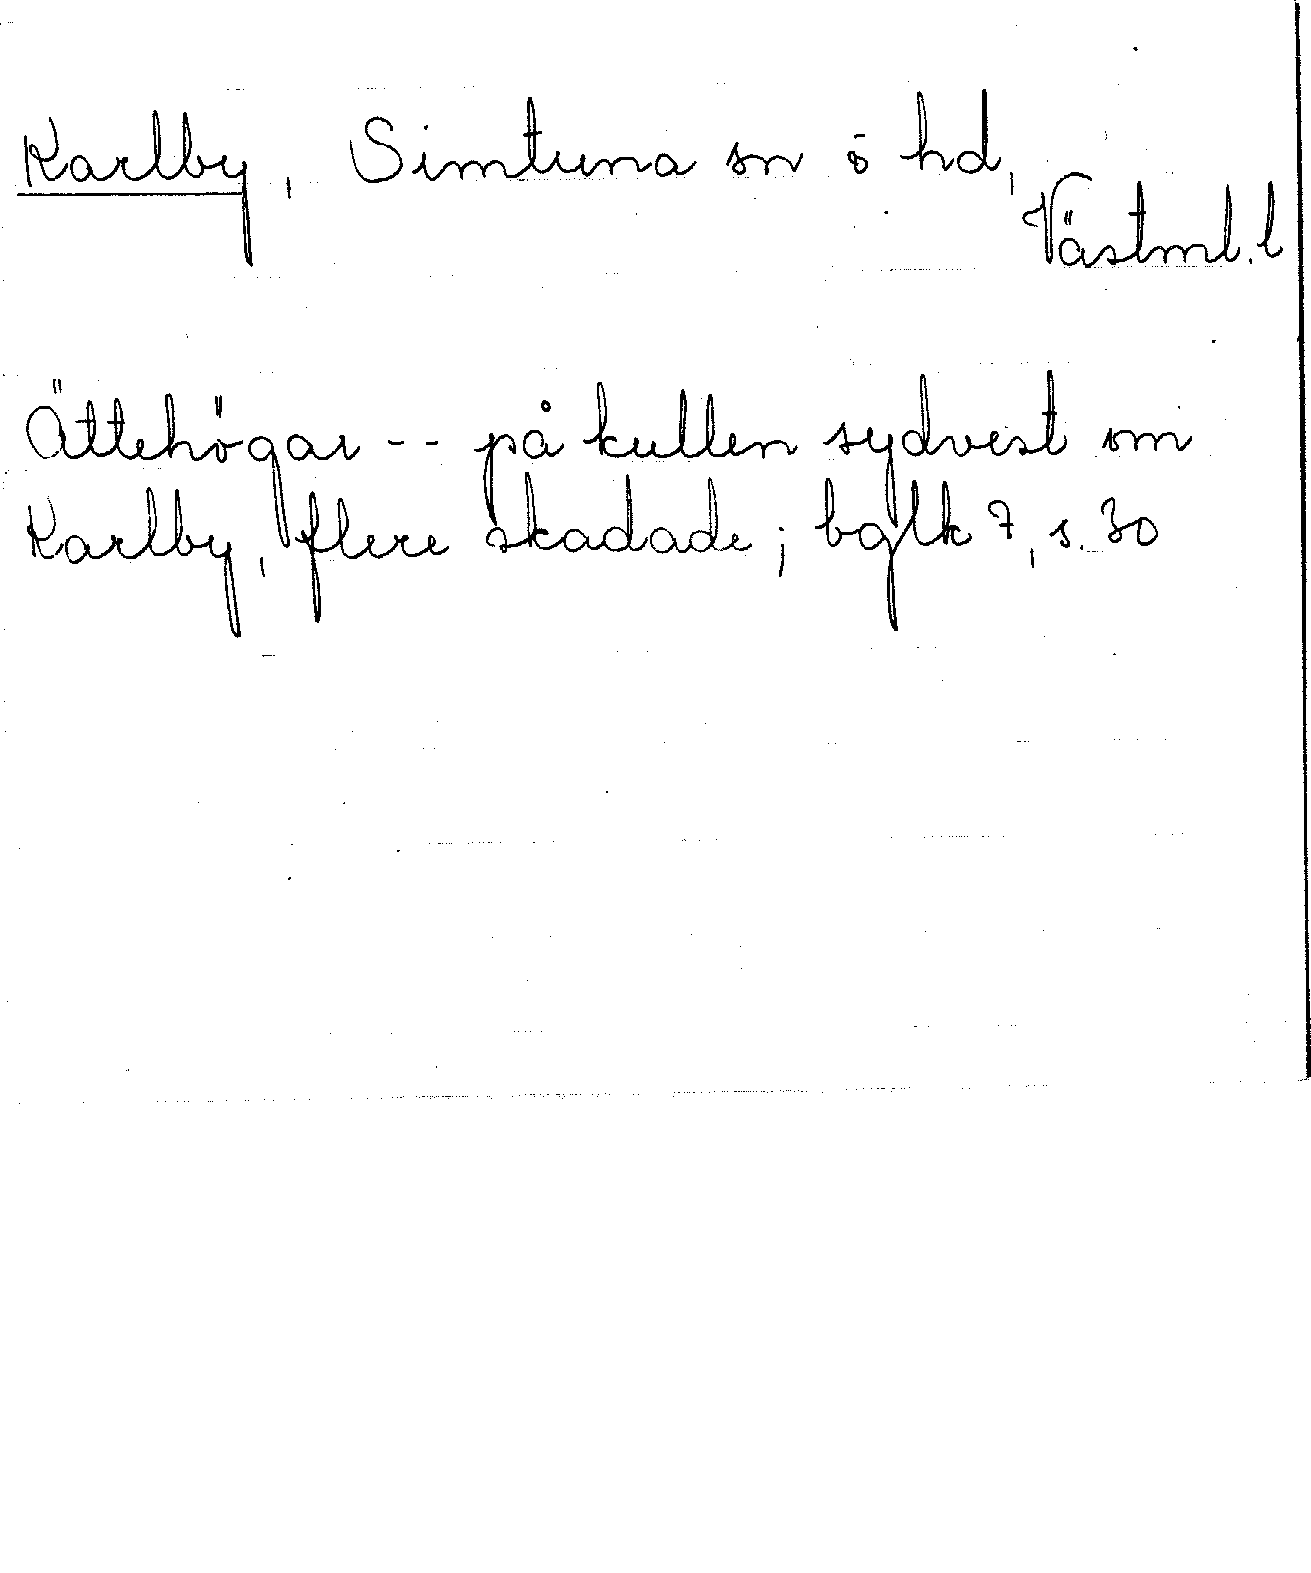 Karlby, Simtuna sn o hd,
Västml. l
Ättehögar -- på kullen sydvest om
Karlby, flere skadade; bglk 7, s. 30